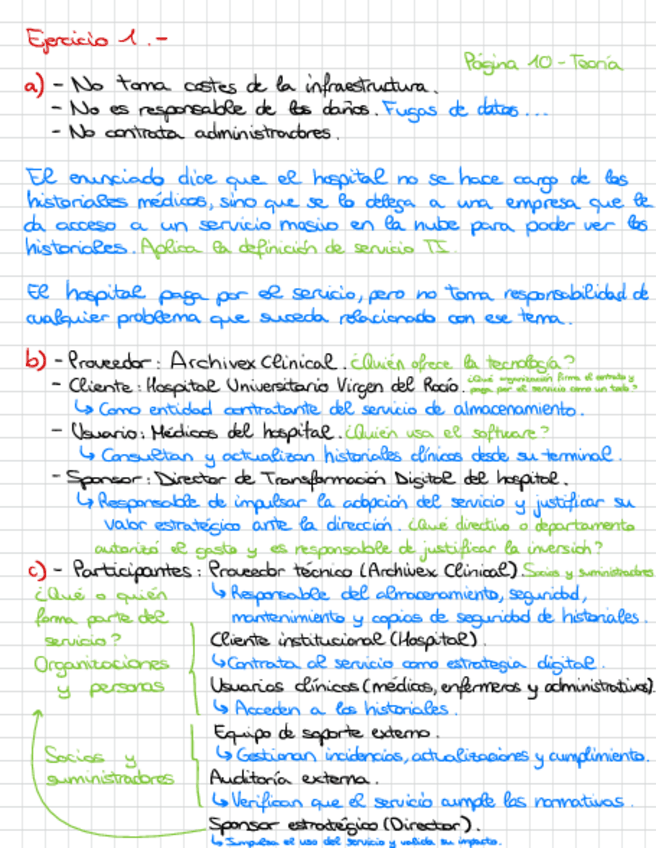 Ejercicio 1.-
Página 10 - Teoría
a) - No toma costes de la infraestructura.
- No es responsable de los daños. Fugas de datos...
- No contrata administradores.
El enunciado dice que el hospital no se hace cargo de los
historiales médicos, sino que se lo delega a una empresa que le
da acceso a un servicio masivo en la nube para poder ver los
historiales. Aplica la definición de servicio TI
El hospital paga por el servicio, pero no toma responsabilidad de
cualquier problema que suceda relacionado con ese tema.
b) - Proveedor: Archivex Clinical. ¿Quién ofrece la tecnología?
- Cliente: Hospital Universitario Virgen del Rocío. ¿Qué organización firma el contrato y
paga por el servicio como un todo?
↳ Como entidad contratante del servicio de almacenamiento.
- Usuario: Médicos del hospital. ¿Quién usa el software?
↳ Consultan y actualizan historiales clínicos desde su terminal.
- Sponsor: Director de Transformación Digital del hospital.
↳ Responsable de impulsar la adopción del servicio y justificar su
valor estratégico ante la dirección. ¿Qué directivo o departamento
autorizó el gasto y es responsable de justificar la inversión?
c) - Participantes: Proveedor técnico (Archivex Clinical). Socios y suministradores
¿Qué o quién
forma parte del
servicio?
Organizaciones
y personas
↳ Responsable del almacenamiento, seguridad,
mantenimiento y copias de seguridad de historiales.
Cliente institucional (Hospital).
↳ Contrata al servicio como estrategia digital.
Usuarios clínicos (médicos, enfermeros y administrativos).
↳ Acceden a los historiales.
Socios y
suministradores
Equipo de soporte externo.
↳ Gestionan incidencias, actualizaciones y cumplimiento.
Auditoría externa.
↳ Verifican que el servicio cumple las normativas.
Sponsor estratégico (Director).
↳ Impulsa el uso del servicio y valida su impacto.